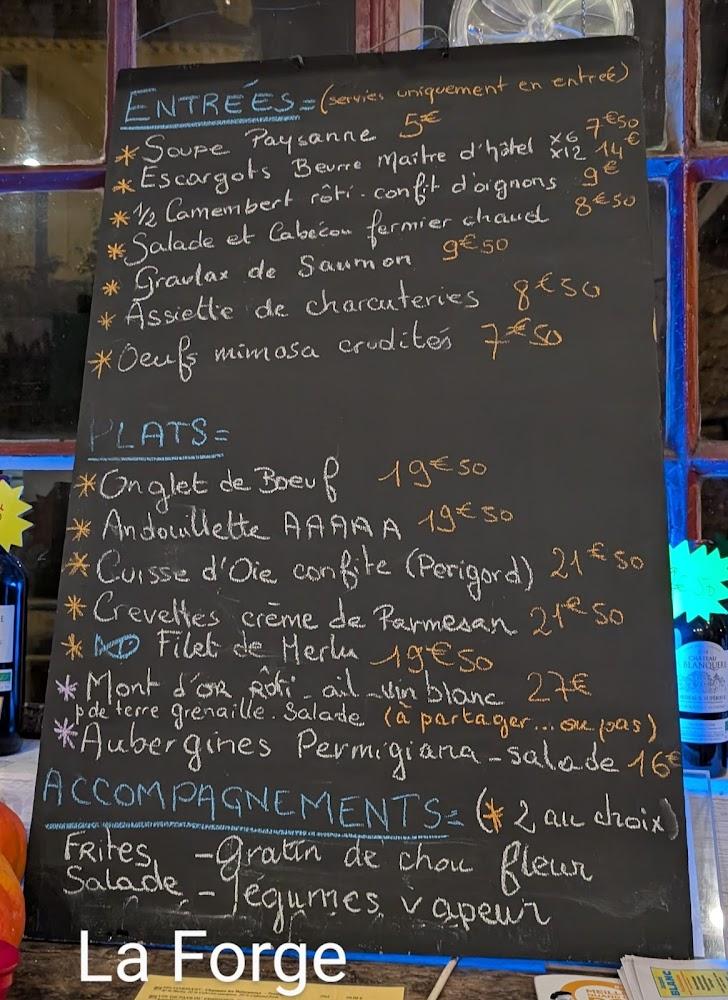 ENTRÉES = (servies uniquement en entreé)
* Soupe Paysanne 5€
* Escargots Beurre Maitre d'hôtel x6 7€50
x12 14€
* 1/2 Camembert rôti. confit d'oignons 9€
* Salade et Cabécou fermier chaud 8€50
* Gravlax de Saumon 9€50
* Assiette de charcuteries 8€50
* Oeufs mimosa crudités 7€50
PLATS =
* Onglet de Boeuf 19€50
* Andouillette AAAAA 19€50
* Cuisse d'Oie confite (Périgord) 21€50
* Crevettes crème de Parmesan 21€50
* Filet de Merlu 19€50
* Mont d'or Rôti - ail - vin blanc 27€
p de terre grenaille. Salade (à partager... ou pas)
* Aubergines Permigiana - salade 16€
ACCOMPAGNEMENTS = (* 2 au choix)
Frites - Gratin de chou fleur
Salade - légumes vapeur
La Forge
CHÂTEAU
BLANC